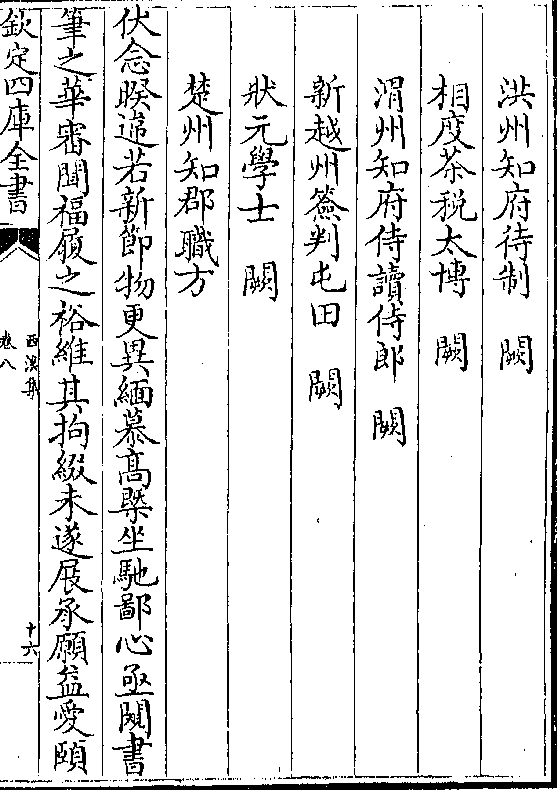 洪州知府待制　闕
相度茶税太博　闕
渭州知府侍讀侍郎　闕
新越州簽判屯田　闕
狀元學士　闕
楚州知郡職方
伏念暌遠若新節物更異緬慕髙槩坐馳鄙心亟閱書
筆之華審聞福履之裕維其拘綴未遂展承願益愛頤
欽定四庫全書
西溪集
卷八
十六